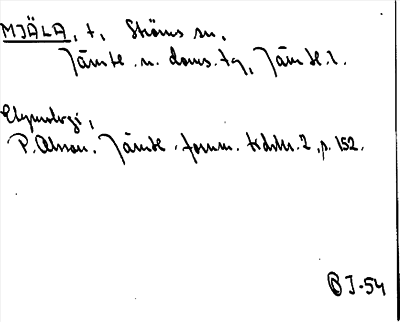 MJÄLA, t, Ströms sn,
Jämtl. n. doms. tg, Jämtl. l.
Etymologi,
P. Olsson. Jämtl. fornm. tidskr. 2, p. 152.
B J-54